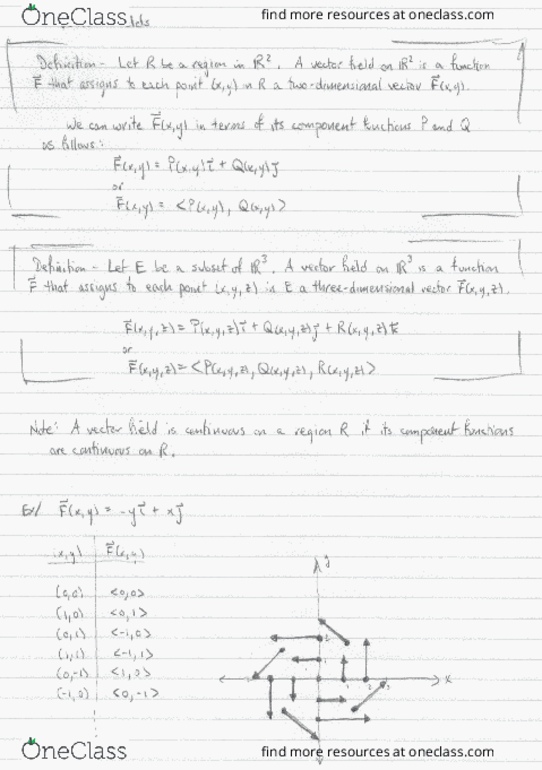 OneClass
find more resources at oneclass.com
Definition - Let R be a region in ℝ². A vector field on ℝ² is a function
F⃗ that assigns to each point (x,y) in R a two-dimensional vector F⃗(x,y).
We can write F⃗(x,y) in terms of its component functions P and Q
as follows:
F⃗(x,y) = P(x,y)i⃗ + Q(x,y)j⃗
or
F⃗(x,y) = <P(x,y), Q(x,y)>
Definition - Let E be a subset of ℝ³. A vector field on ℝ³ is a function
F⃗ that assigns to each point (x,y,z) in E a three-dimensional vector F⃗(x,y,z).
F⃗(x,y,z) = P(x,y,z)i⃗ + Q(x,y,z)j⃗ + R(x,y,z)k⃗
or
F⃗(x,y,z) = <P(x,y,z), Q(x,y,z), R(x,y,z)>
Note: A vector field is continuous on a region R if its component functions
are continuous on R.
Ex/ F⃗(x,y) = -yi⃗ + xj⃗
(x,y) F⃗(x,y)
(0,0) <0,0>
(1,0) <0,1>
(0,1) <-1,0>
(1,1) <-1,1>
(0,-1) <1,0>
(-1,0) <0,-1>
y
2
1
1 2 3 x
OneClass
find more resources at oneclass.com